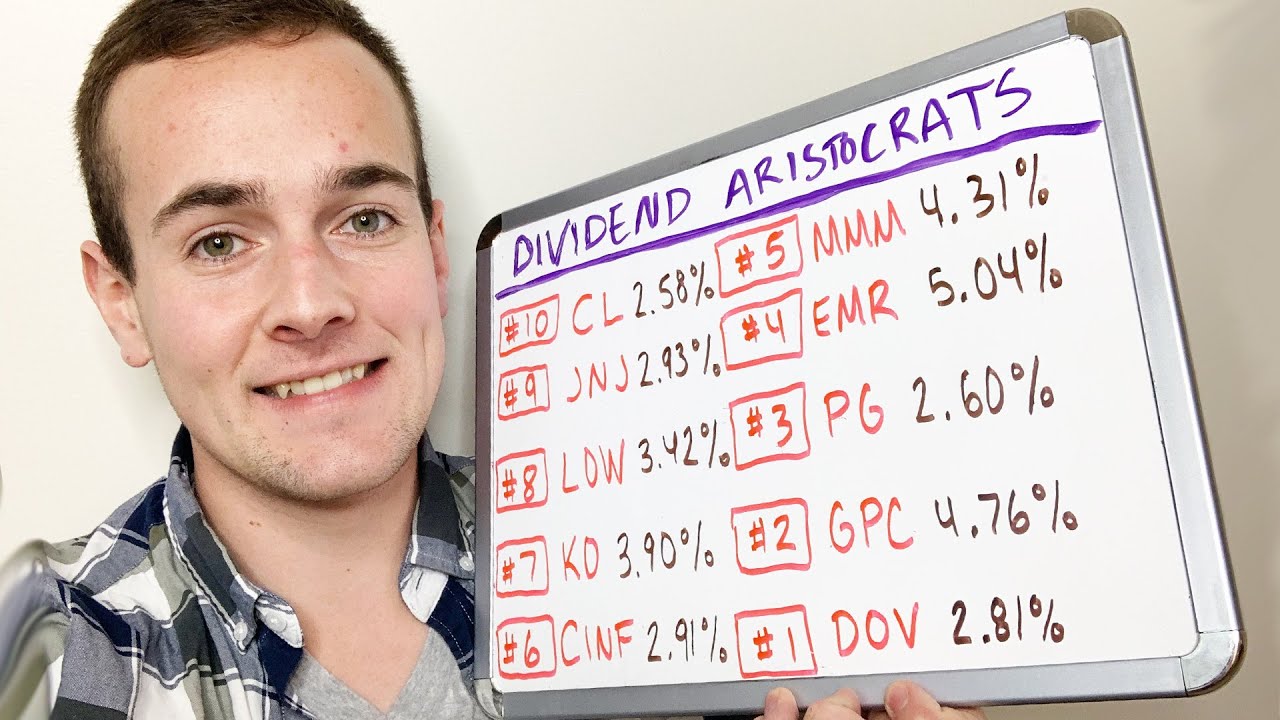 DIVIDEND ARISTOCRATS
#10 CL 2.58%
#9 JNJ 2.93%
#8 LOW 3.42%
#7 KO 3.90%
#6 CINF 2.91%
#5 MMM 4.31%
#4 EMR 5.04%
#3 PG 2.60%
#2 GPC 4.76%
#1 DOV 2.81%